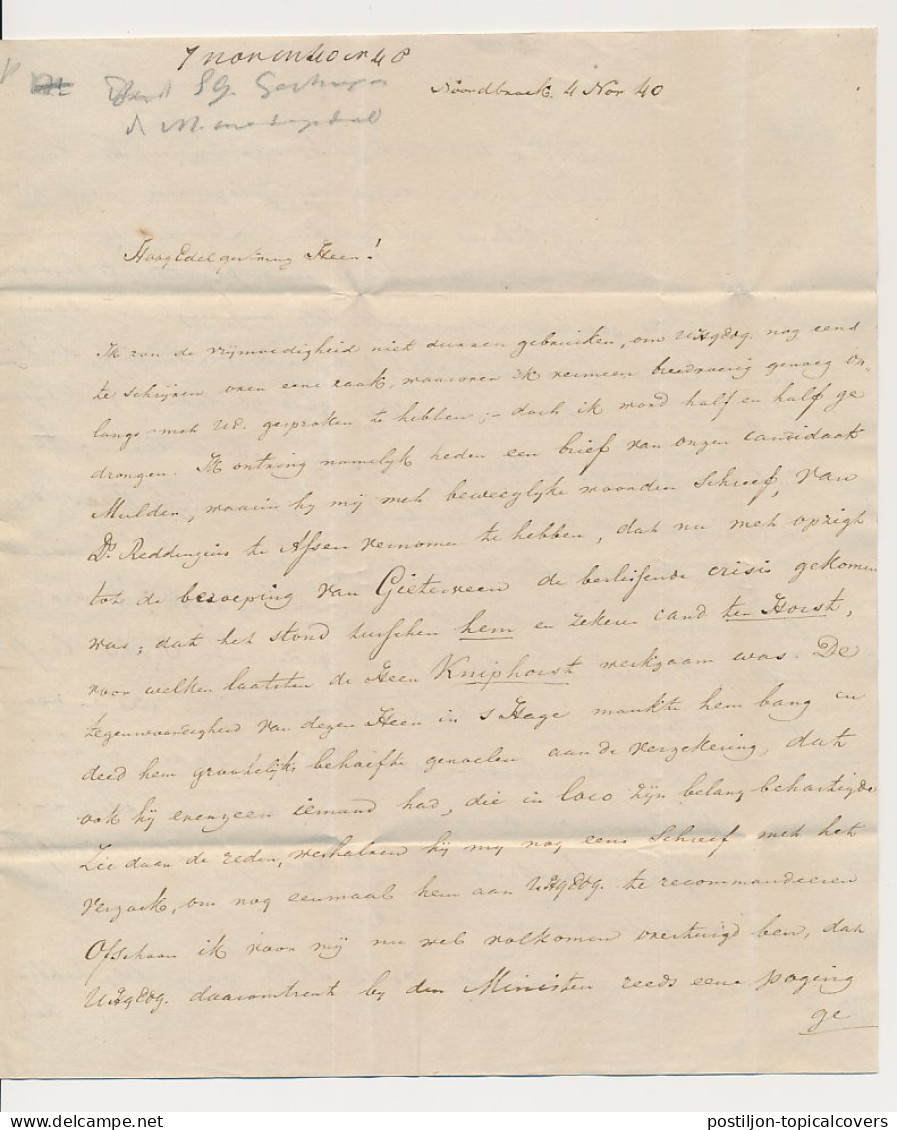 7 november 40
Noordbroek. 4 Nov 40
HoogEdelgestreng Heer!
Ik zou de vrijmoedigheid niet durven gebruiken, om UHgEdg. nog eens
te schrijven over eene zaak, waarover ik vermeen breedvoerig genoeg on-
langs met UEd. gesproken te hebben; doch ik word half en half ge
drongen. Ik ontving namelijk heden een brief van onzen candidaat
Mulder, waarin hij mij met beweeglyke woorden schreef, van
Ds. Reddingius te Assen vernomen te hebben, dat nu met opzigt
tot de beroeping van Gieterveen de beslissende crisis gekomen
was; dat het stond tusschen hem en zekere cand ten Horst,
voor welken laatsten de Heer Kniphorst werkzaam was. De
tegenwoordigheid van dezen Heer in s Hage maakte hem bang en
deed hem grootelijks behoefte gevoelen aan de verzekering, dat
ook hij evenzeer iemand had, die in loco zijn belang behartigde
Zie daar de reden, weshalven hij mij nog eens schreef met het
verzoek, om nog eenmaal hem aan UHgEdg. te recommandeeren
Ofschoon ik voor mij nu wel volkomen overtuigd ben, dat
UHgEdg. daaromtrent by den Minister reeds eene poging
ge
postiljon-topicalcovers